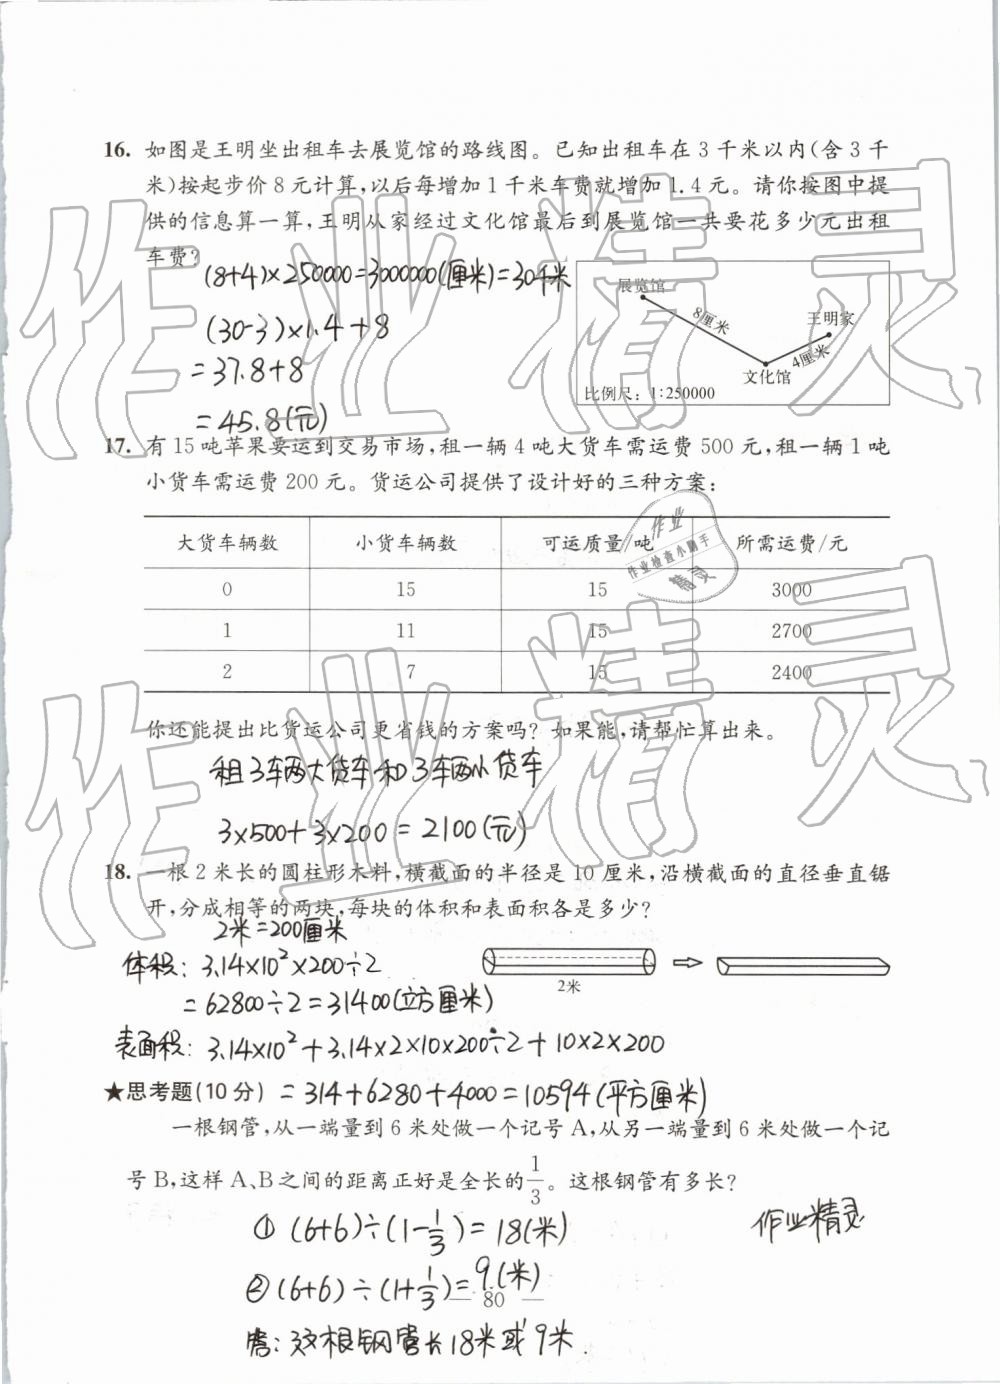 16. 如图是王明坐出租车去展览馆的路线图。已知出租车在3千米以内(含3千
米)按起步价8元计算,以后每增加1千米车费就增加1.4元。请你按图中提
供的信息算一算,王明从家经过文化馆最后到展览馆一共要花多少元出租
车费?
(8+4)×250000=3000000(厘米)=30千米
(30-3)×1.4+8
=37.8+8
=45.8(元)
展览馆
8厘米
王明家
4厘米
文化馆
比例尺：1:250000
17. 有15吨苹果要运到交易市场,租一辆4吨大货车需运费500元,租一辆1吨
小货车需运费200元。货运公司提供了设计好的三种方案:
大货车辆数 小货车辆数 可运质量/吨 所需运费/元
0 15 15 3000
1 11 15 2700
2 7 15 2400
你还能提出比货运公司更省钱的方案吗?如果能,请帮忙算出来。
租3车辆大货车和3车辆小货车
3×500+3×200=2100(元)
18. 一根2米长的圆柱形木料,横截面的半径是10厘米,沿横截面的直径垂直锯
开,分成相等的两块,每块的体积和表面积各是多少?
2米=200厘米
体积: 3.14×10²×200÷2
=62800÷2=31400(立方厘米)
2米
表面积: 3.14×10²+3.14×2×10×200÷2+10×2×200
★思考题(10分) =314+6280+4000=10594(平方厘米)
一根钢管,从一端量到6米处做一个记号A,从另一端量到6米处做一个记
号B,这样A、B之间的距离正好是全长的1/3。这根钢管有多长?
① (6+6)÷(1-1/3)=18(米)
作业精灵
② (6+6)÷(1+1/3)=9(米)
— 80 —
答:这根钢管长18米或9米.
作业精灵
作业精灵
作业
作业检查小助手
精灵